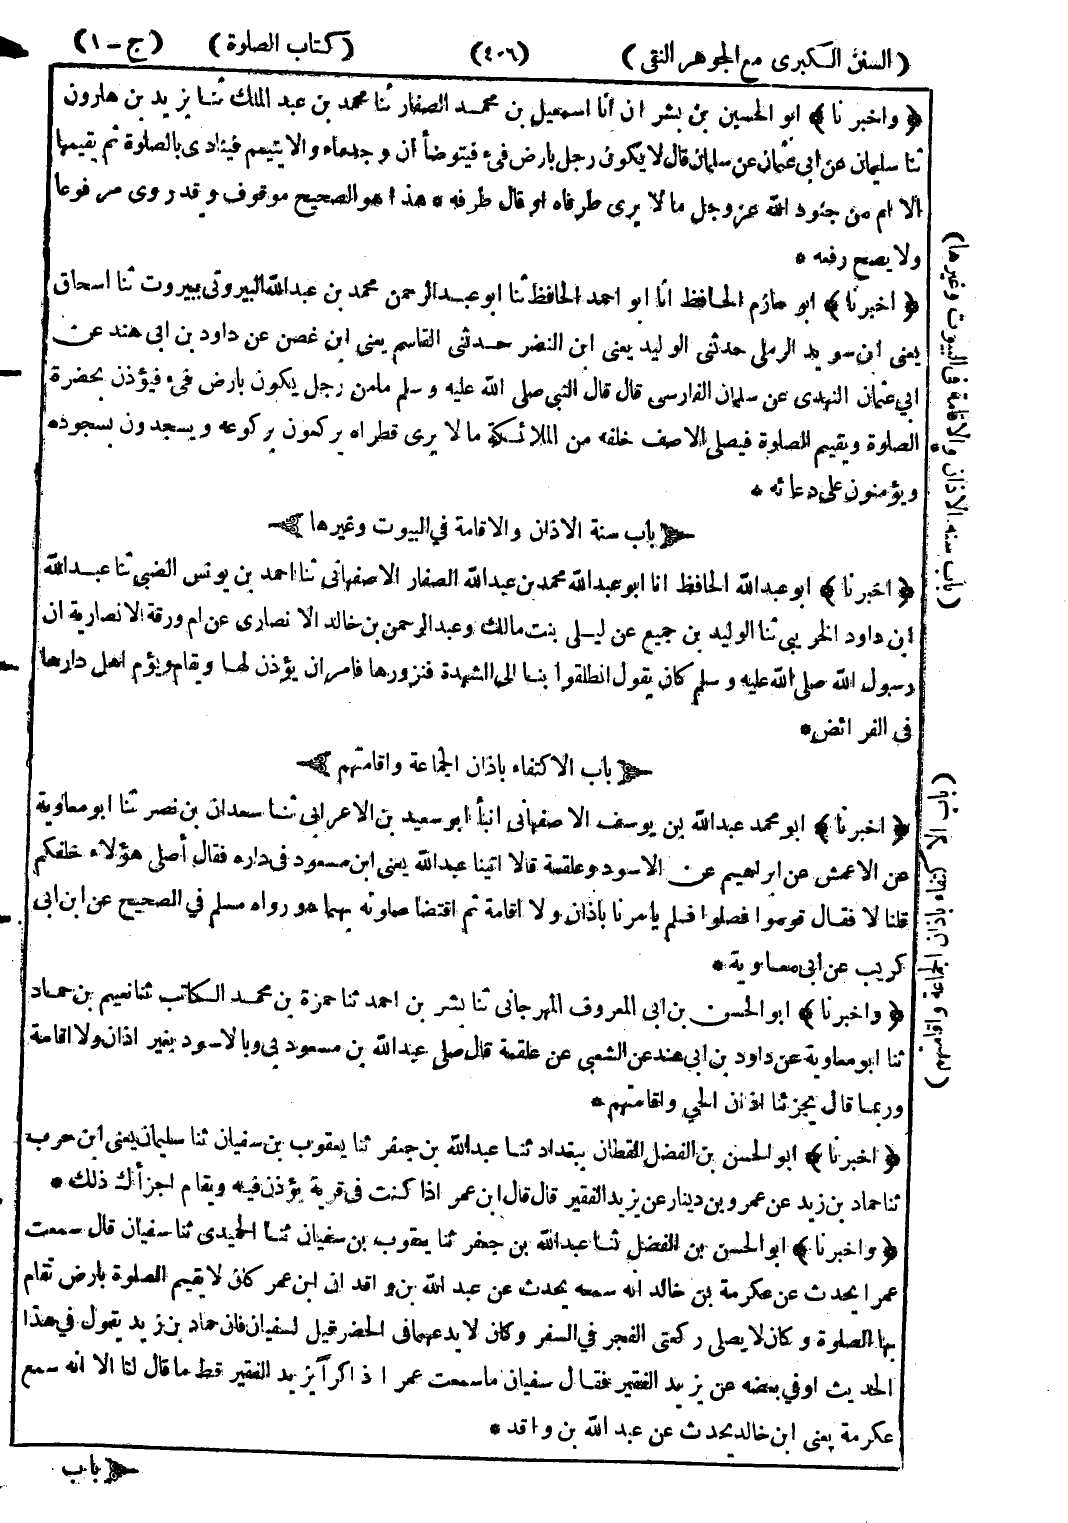 (السنن الكبرى مع الجوهر النقى)
(٤٠٦)
(كتاب الصلوة)
(ج - ١)
﴿ واخبرنا ﴾ ابو الحسين بن بشران انا اسمعيل بن محمد الصفار ثنا محمد بن عبد الملك ثنا يزيد بن هارون
ثنا سليمان عن ابى عثمان عن سلمان قال لا يكون رجل بارض فىء فيتوضأ ان وجد ماء والا يتيمم فينادى بالصلوة ثم يقيمها
الا ام من جنود الله عز وجل ما لا يرى طرفاه او قال طرفه * هذا هو الصحيح موقوف وقد روى مرفوعا
ولا يصح رفعه *
﴿ اخبرنا ﴾ ابو حازم الحافظ انا ابو احمد الحافظ ثنا ابو عبد الرحمن محمد بن عبد الله البيروتى ببيروت ثنا اسحاق
يعنى ابن سويد الرملى حدثنى الوليد يعنى ابن النضر حدثنى القاسم يعنى ابن غصن عن داود بن ابى هند عن
ابى عثمان النهدى عن سلمان الفارسى قال قال النبى صلى الله عليه وسلم مامن رجل يكون بارض فىء فيؤذن بحضرة
الصلوة ويقيم الصلوة فيصلى الاصف خلفه من الملائكة ما لا يرى قطراه يركعون بركوعه ويسجدون بسجوده
ويؤمنون على دعائه *
باب سنة الاذان والاقامة في البيوت وغيرها
﴿ اخبرنا ﴾ ابو عبد الله الحافظ انا ابو عبد الله محمد بن عبد الله الصفار الاصفهانى ثنا احمد بن يونس الضبي ثنا عبد الله
ابن داود الخريبى ثنا الوليد بن جميع عن ليلى بنت مالك وعبد الرحمن بن خالد الانصارى عن ام ورقة الانصارية ان
رسول الله صلى الله عليه وسلم كان يقول انطلقوا بنا الى الشهيدة فنزورها فامر ان يؤذن لها ويقام ويؤم اهل دارها
فى الفرائض *
باب الاكتفاء باذان الجماعة واقامتهم
﴿ اخبرنا ﴾ ابو محمد عبد الله بن يوسف الاصفهانى انبأ ابو سعيد بن الاعرابى ثنا سعدان بن نصر ثنا ابو معاوية
عن الاعمش عن ابراهيم عن الاسود وعلقمة قالا اتينا عبد الله يعنى ابن مسعود فى داره فقال أصلى هؤلاء خلفكم
قلنا لا فقال قوموا فصلوا فلم يامرنا باذان ولا اقامة ثم اقتصا صلوته بهما هو رواه مسلم في الصحيح عن ابن ابى
كريب عن ابى معاوية *
﴿ واخبرنا ﴾ ابو الحسن بن ابى المعروف المهرجانى ثنا بشر بن احمد ثنا حمزة بن محمد الكاتب ثنا نعيم بن حماد
ثنا ابو معاوية عن داود بن ابى هند عن الشعبي عن علقمة قال صلى عبد الله بن مسعود بى وبالاسود بغير اذان ولا اقامة
وربما قال يجزئنا اذان الحي واقامتهم *
﴿ اخبرنا ﴾ ابو الحسن بن الفضل القطان ببغداد ثنا عبد الله بن جعفر ثنا يعقوب بن سفيان ثنا سليمان يعنى ابن حرب
ثنا حماد بن زيد عن عمرو بن دينار عن يزيد الفقير قال قال ابن عمر اذا كنت فى قرية يؤذن فيه ويقام اجزأك ذلك *
﴿ واخبرنا ﴾ ابو الحسن بن الفضل ثنا عبد الله بن جعفر ثنا يعقوب بن سفيان ثنا الحميدى ثنا سفيان قال سمعت
عمرا يحدث عن عكرمة بن خالد انه سمعه يحدث عن عبد الله بن واقد ان ابن عمر كان لا يقيم الصلوة بارض تقام
بها الصلوة وكان لا يصلى ركعتى الفجر في السفر وكان لا يدعهما فى الحضر قيل لسفيان فان حماد بن زيد يقول في هذا
الحديث اوفي بعضه عن يزيد الفقير فقال سفيان ما سمعت عمرا ذاكرا يزيد الفقير قط ما قال لنا الا انه سمع
عكرمة يعنى ابن خالد يحدث عن عبد الله بن واقد *
باب
(باب سنه الاذان والاقامة فى البيوت وغيرها)
(باب الاكتفاء باذان الجماعة واقامتهم)